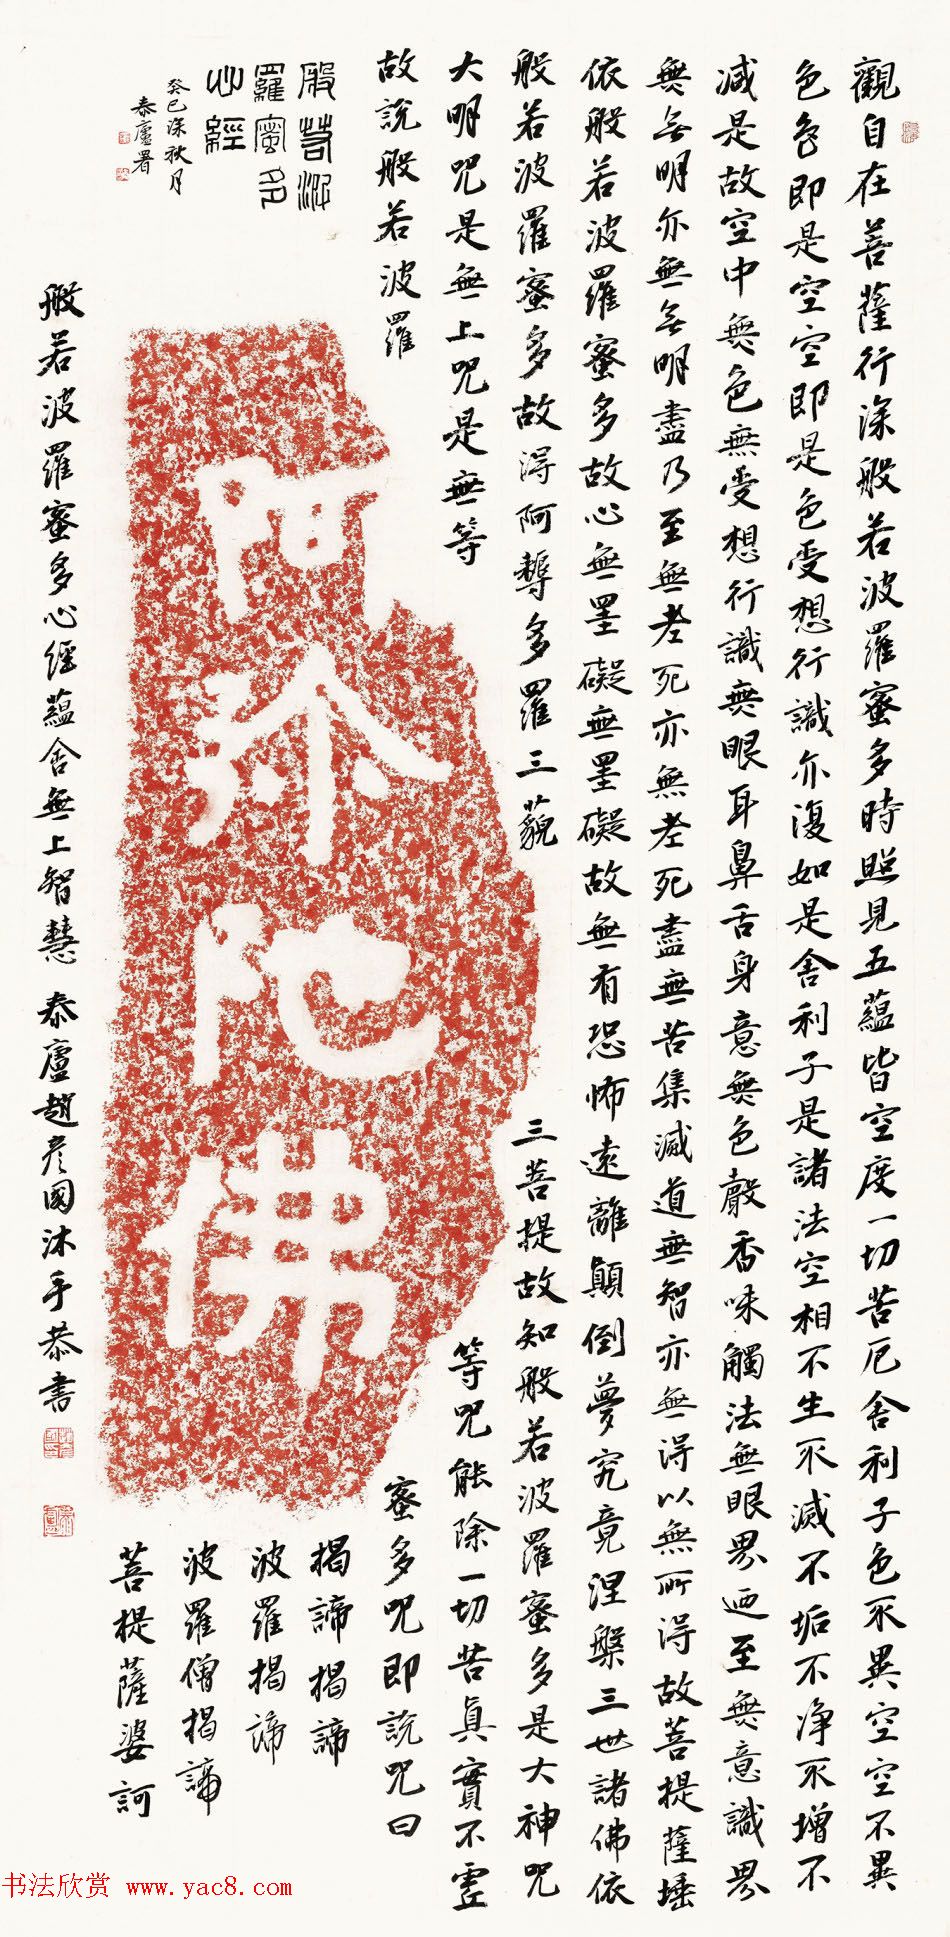 觀自在菩薩行深般若波羅蜜多時照見五蘊皆空度一切苦厄舍利子色不異空空不異
色色即是空空即是色受想行識亦復如是舍利子是諸法空相不生不滅不垢不净不增不
减是故空中無色無受想行識無眼耳鼻舌身意無色聲香味觸法無眼界迺至無意識界
無無明亦無無明盡乃至無老死亦無老死盡無苦集滅道無智亦無得以無所得故菩提薩埵
依般若波羅蜜多故心無罣礙無罣礙故無有恐怖遠離顛倒夢究竟涅槃三世諸佛依
般若波羅蜜多故得阿耨多羅三藐三菩提故知般若波羅蜜多是大神咒
大明咒是無上咒是無等等咒能除一切苦真實不虛
故說般若波羅蜜多咒即說咒曰
揭諦揭諦
波羅揭諦
波羅僧揭諦
菩提薩婆訶
般若波
羅蜜多
心經
癸巳深秋月
泰廬署
阿弥陀佛
般若波羅蜜多心經蘊含無上智慧 泰廬趙彥國沐手恭書
书法欣赏 www.yac8.com